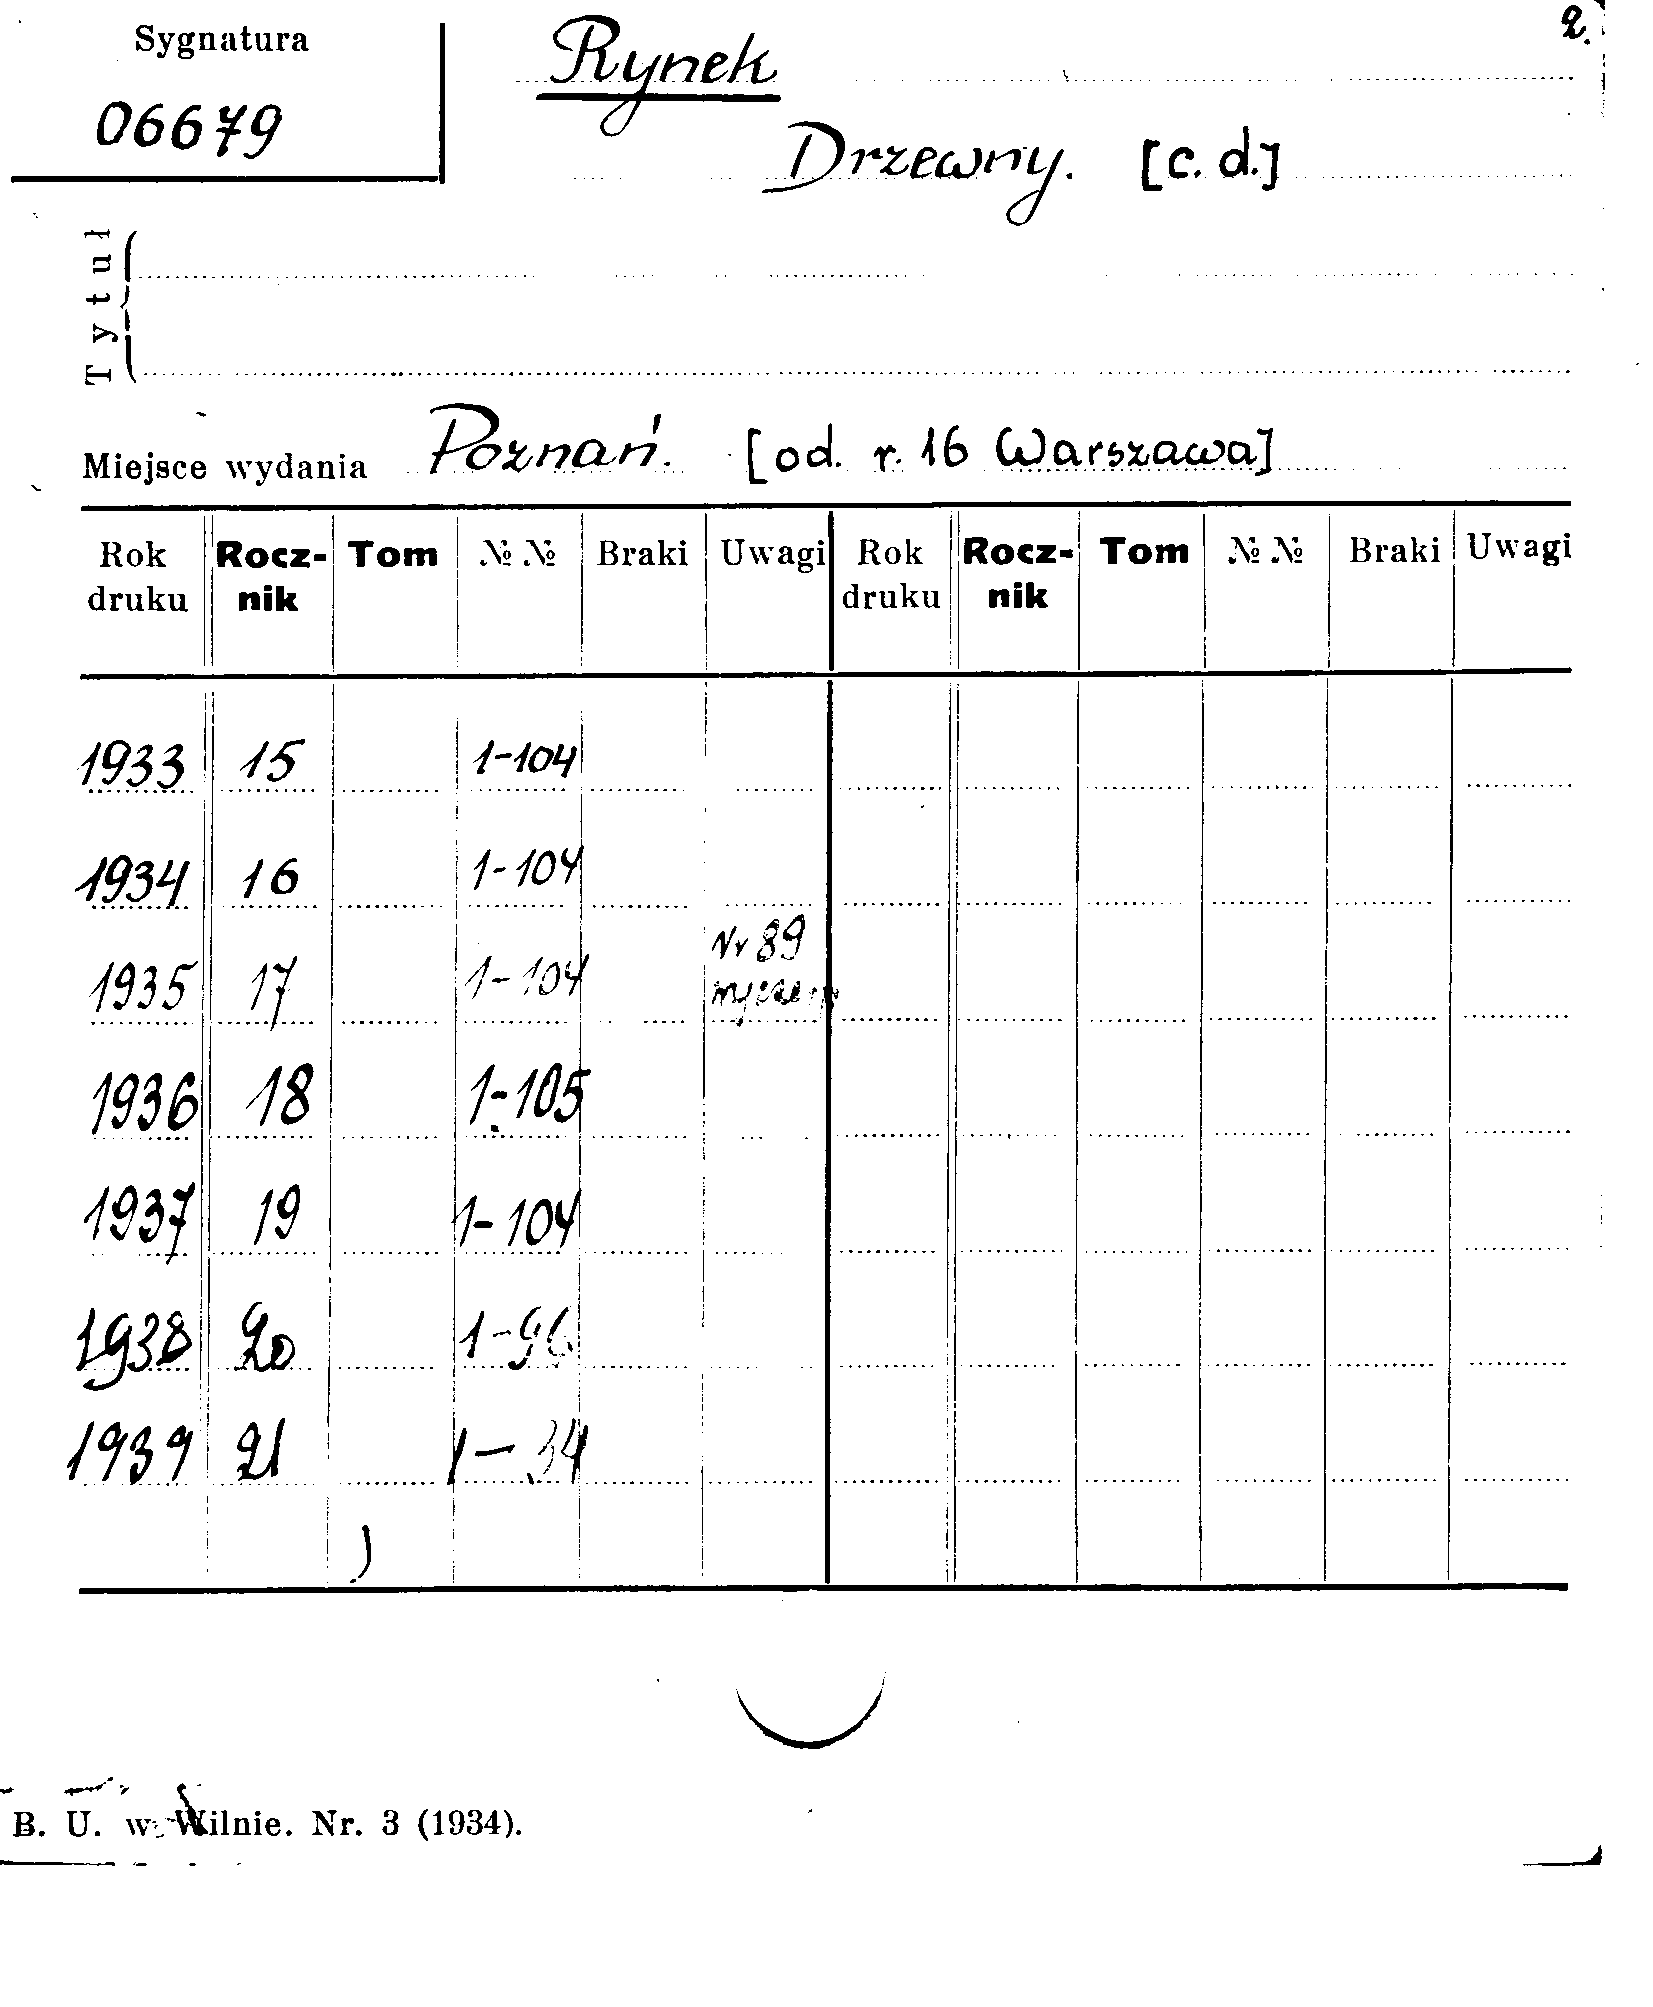 2.
Sygnatura
06679
Rynek
Drzewny. [c. d.]
Tytuł
Miejsce wydania Poznań. [od. r. 16 Warszawa]
Rok druku Rocz-nik Tom № № Braki Uwagi Rok druku Rocz-nik Tom № № Braki Uwagi
1933 15 1-104
1934 16 1-104
1935 17 1-104 Nr 89
1936 18 1-105
1937 19 1-104
1938 20 1-96
1939 21 1-34
B. U. w Wilnie. Nr. 3 (1934).